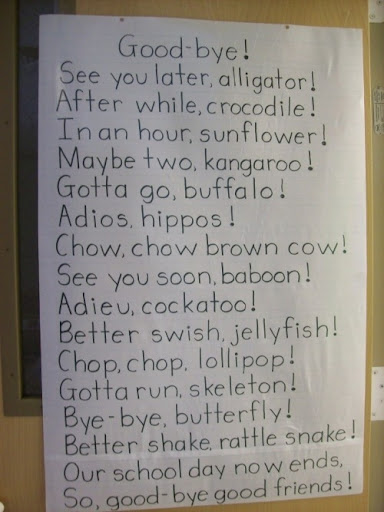 Good-bye!
See you later, alligator!
After while, crocodile!
In an hour, sunflower!
Maybe two, kangaroo!
Gotta go, buffalo!
Adios, hippos!
Chow, chow brown cow!
See you soon, baboon!
Adieu, cockatoo!
Better swish, jellyfish!
Chop, chop, lollipop!
Gotta run, skeleton!
Bye-bye, butterfly!
Better shake, rattle snake!
Our school day now ends,
So, good-bye good friends!